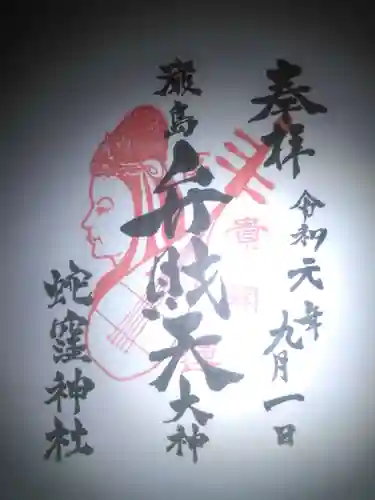 奉拝
令和元年
九月一日
厳島
弁財天
大神
蛇窪神社